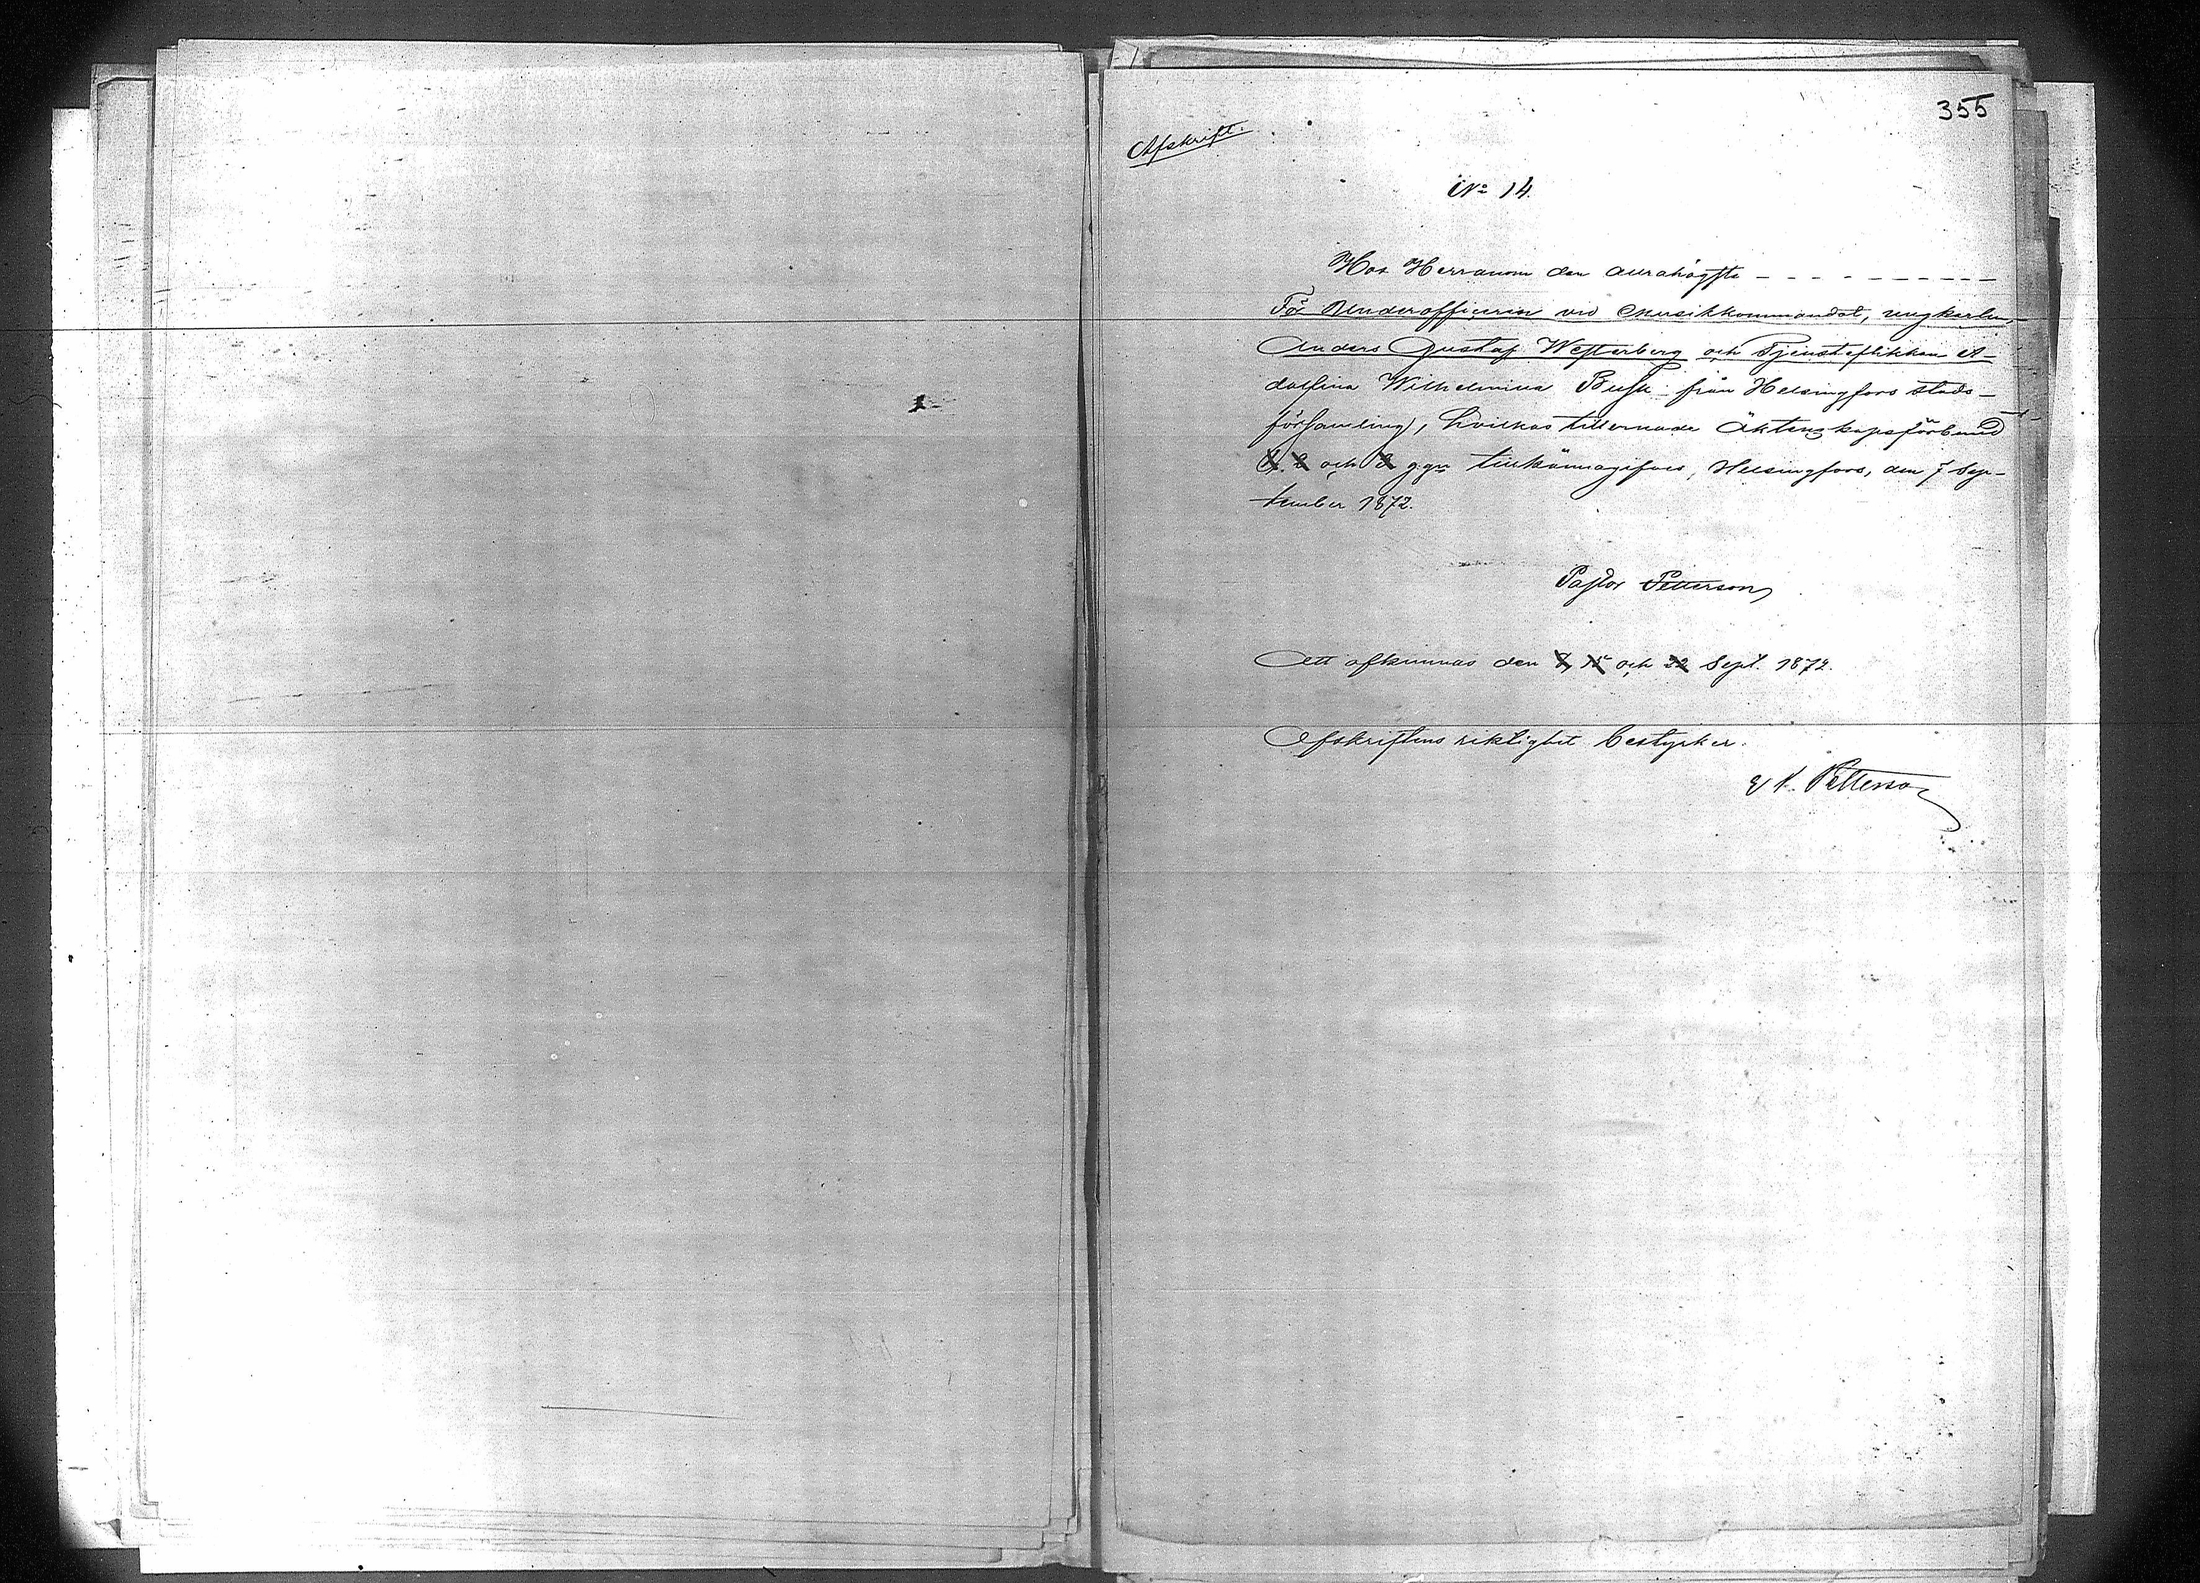 355
Afskrift.
No 14.
Hos Herranom den allrahögste - - - - - - - - -
För Underofficeren vid Musikkommandot, ungkarlen,
Anders Gustaf Westerberg och Tjensteflickan A-
dolfina Wilhelmina Busk från Helsingfors stads-
församling, hvilkas tillernade Äktenskapsförbund
1, 2 och 3 ggn tillkännagifves, Helsingfors, den 7 Sep-
tember 1872.
Pastor Petterson
Att afkunnas den 8, 15 och 22 Sept. 1872.
Afskriftens riktighet bestyrker:
K. Petterson